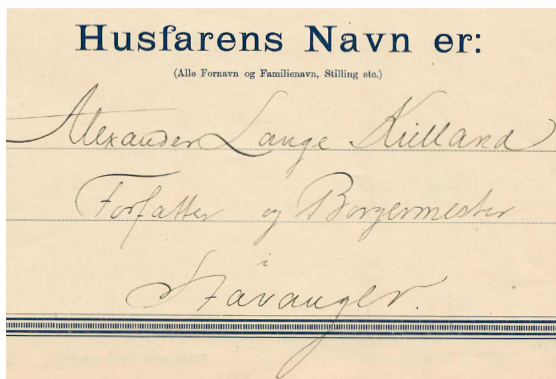 Husfarens Navn er:
(Alle Fornavn og Familienavn, Stilling etc.)
Alexander Lange Kielland
Forfatter og Borgermester
i
Stavanger.